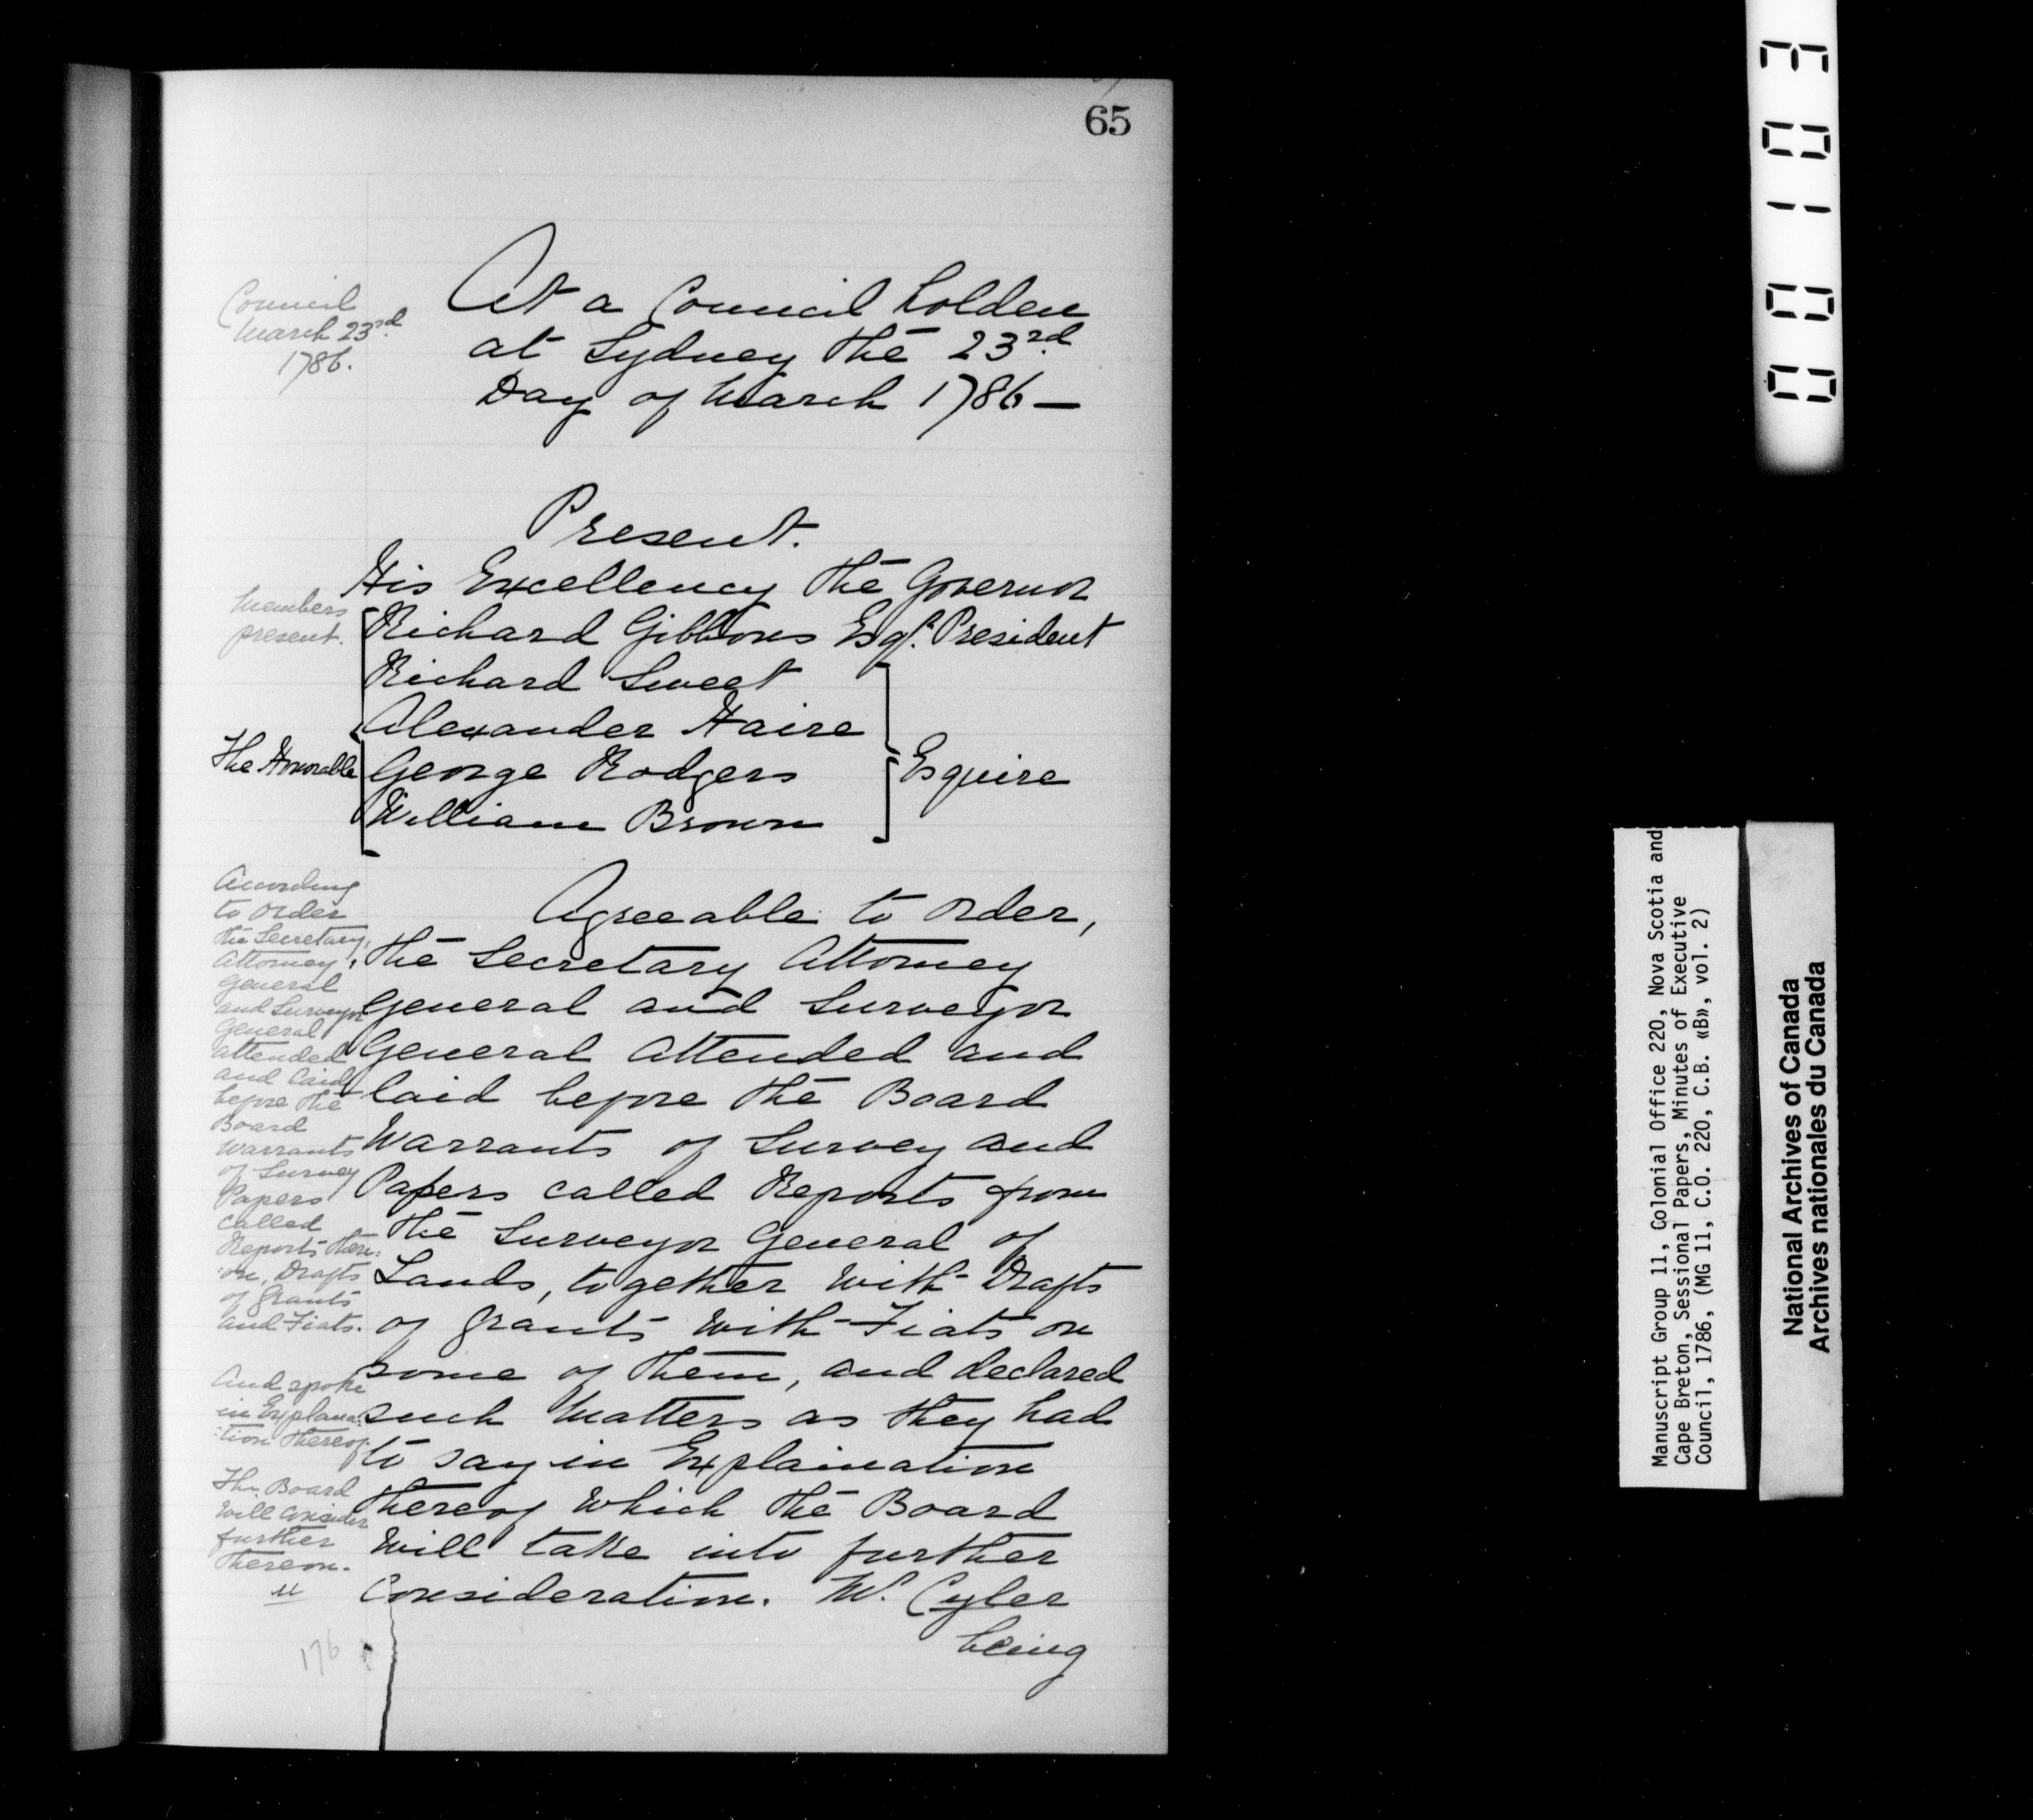 65
Council
March 23rd.
1786.
At a Council holden
at Sydney the 23rd.
Day of March 1786 —
Present.
His Excellency the Governor
Members
present.
Richard Gibbons Esqr. President
Richard Sweet
Alexander Haire
The Honorable
George Rodgers
Esquire
William Brown
According
to order
the Secretary,
Attorney,
General
and Surveyor
General
attended
and laid
before the
Board
Warrants
of Survey
Papers
called
Reports there:
:on, Drafts
of Grants
and Fiats.
And spoke
in Explana:
:tion thereof.
The Board
will consider
further
thereon.
Agreeable to order,
the Secretary Attorney
General and Surveyor
General attended and
laid before the Board
Warrants of Survey and
Papers called Reports from
the Surveyor General of
Lands, together with Drafts
of Grants with Fiats on
some of them, and declared
such Matters as they had
to say in Explaination
thereof which the Board
Will take into further
Consideration. Mr. Cyler
being
176
001103
Manuscript Group 11, Colonial Office 220, Nova Scotia and
Cape Breton, Sessional Papers, Minutes of Executive
Council, 1786, (MG 11, C.O. 220, C.B. «B», vol. 2)
National Archives of Canada
Archives nationales du Canada